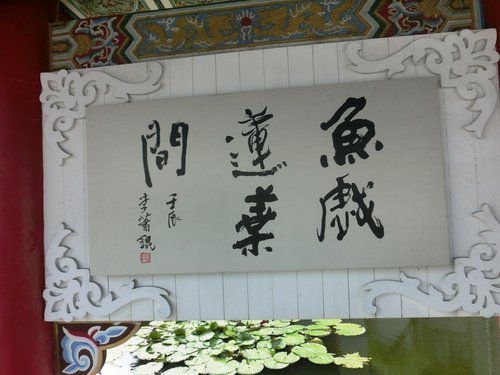 魚戲
蓮葉
間
壬辰
李蕭錕